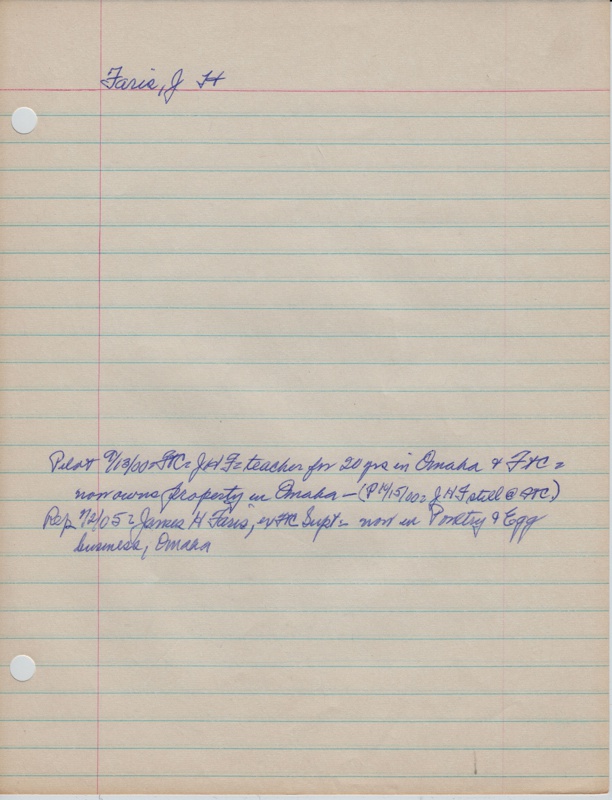 Faris, J H
Pilot 9/13/00 = FtC = JHF = teacher for 20 yrs in Omaha & FtC =
now owns property in Omaha – (P 11/15/00 = J H F still @ FtC)
Rep 9/2/05 = James H Faris, ex FtC Supt = now in Poultry & Egg
business, Omaha